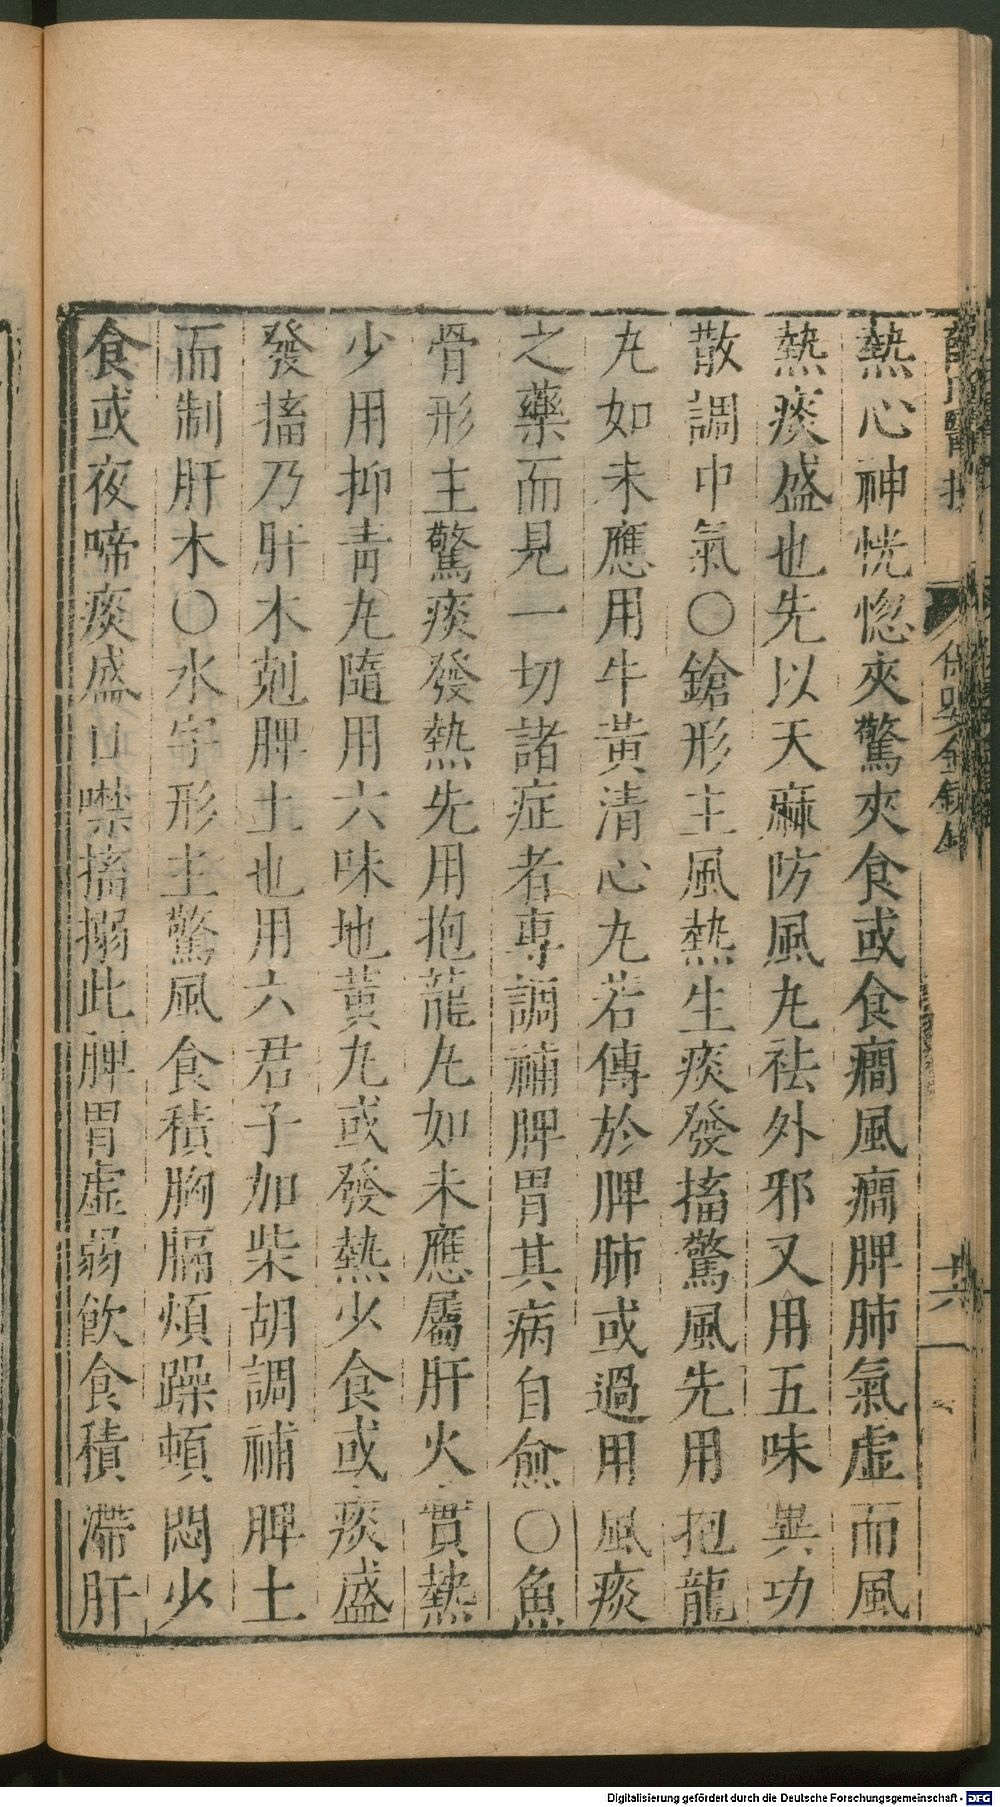 熱心神恍惚夾驚夾食或食癎風癎脾肺氣虛而風
熱痰盛也先以天麻防風丸祛外邪又用五味異功
散調中氣○鎗形主風熱生痰發搐驚風先用抱龍
丸如未應用牛黃清心丸若傳於脾肺或過用風痰
之藥而見一切諸症者專調補脾胃其病自愈○魚
骨形主驚痰發熱先用抱龍丸如未應屬肝火實熱
少用抑青丸隨用六味地黃丸或發熱少食或痰盛
發搐乃肝木剋脾土也用六君子加柴胡調補脾土
而制肝木○水字形主驚風食積胸膈煩躁頓悶少
食或夜啼痰盛口噤搐搦此脾胃虛弱飲食積滯肝
十六
Digitalisierung gefördert durch die Deutsche Forschungsgemeinschaft - DFG